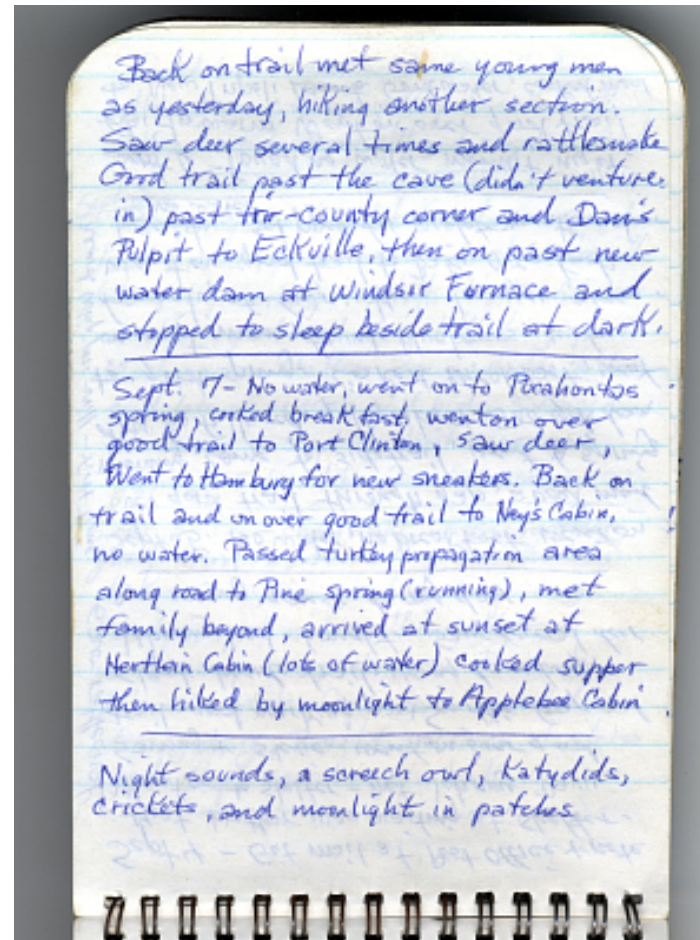 Back on trail met same young men
as yesterday, hiking another section.
Saw deer several times and rattlesnake
Good trail past the cave (didn't venture
in) past tri-county corner and Dan's
Pulpit to Eckville, then on past new
water dam at Windsor Furnace and
stopped to sleep beside trail at dark.
Sept. 7 - No water, went on to Pocahontas
spring, cooked breakfast, went on over
good trail to Port Clinton, saw deer,
Went to Hamburg for new sneakers. Back on
trail and on over good trail to Ney's Cabin,
no water. Passed turkey propagation area
along road to Pine spring (running), met
family beyond, arrived at sunset at
Hertlein Cabin (lots of water) cooked supper
then hiked by moonlight to Applebee Cabin
Night sounds, a screech owl, katydids,
crickets, and moonlight in patches